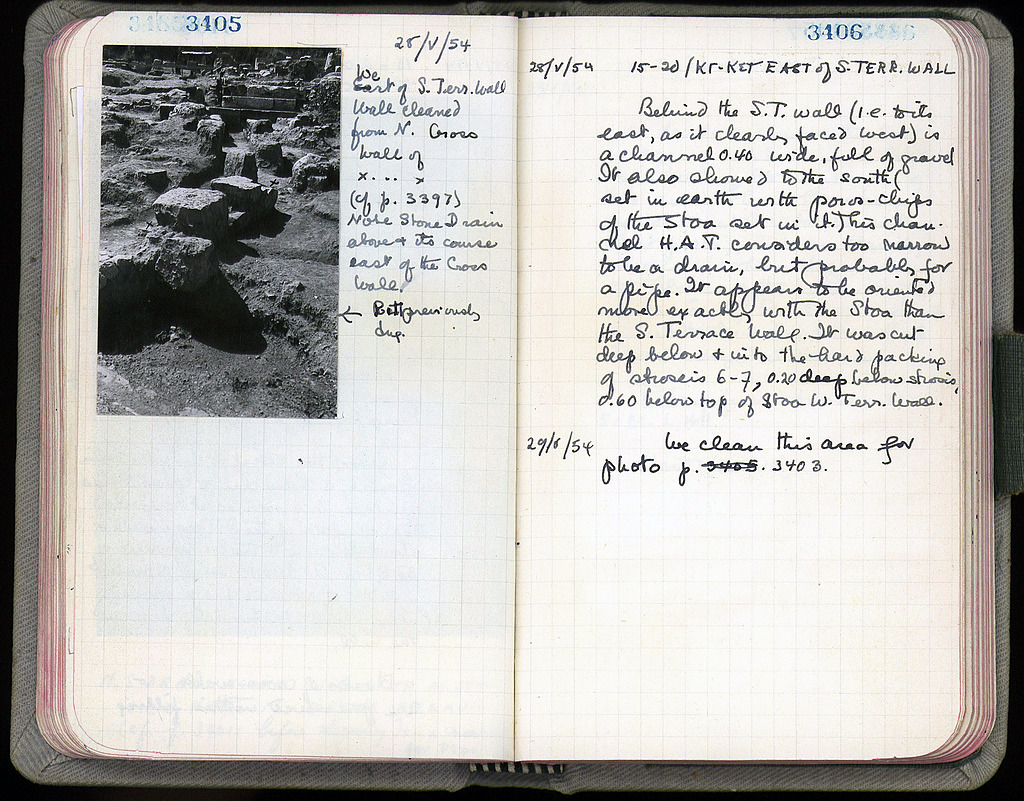 3405
28/V/54
We
East of S. Terr. Wall
Wall cleaned
from N. Cross
Wall of
x . . . x
(cf p. 3397)
Note Stone Drain
above & its course
east of the Cross
Wall.
← Pit previously
dug.
3406
28/V/54 15-20/KΓ-KΣΤ EAST of S. TERR. WALL
Behind the S.T. wall (i.e. to its
east, as it clearly faced west) is
a channel 0.40 wide, full of gravel
It also showed to the south (
set in earth with poros-chips
of the Stoa set in it. This chan-
nel H.A.T. considers too narrow
to be a drain, but probably for
a pipe. It appears to be oriented
more exactly with the Stoa than
the S. Terrace Wall. It was cut
deep below & into the hard packing
of stroseis 6-7, 0.20 deep below strosis,
0.60 below top of Stoa W. Terr. Wall.
29/V/54 We clean this area for
photo p. 3405. 3403.